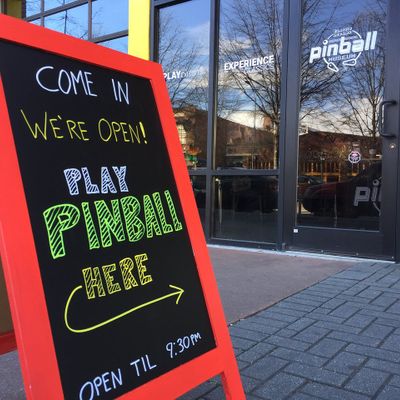 COME IN
WE'RE OPEN!
PLAY
PINBALL
HERE
OPEN TIL 9:30 PM
PLAY
EXPERIENCE
pinball
MUSEUM
pin